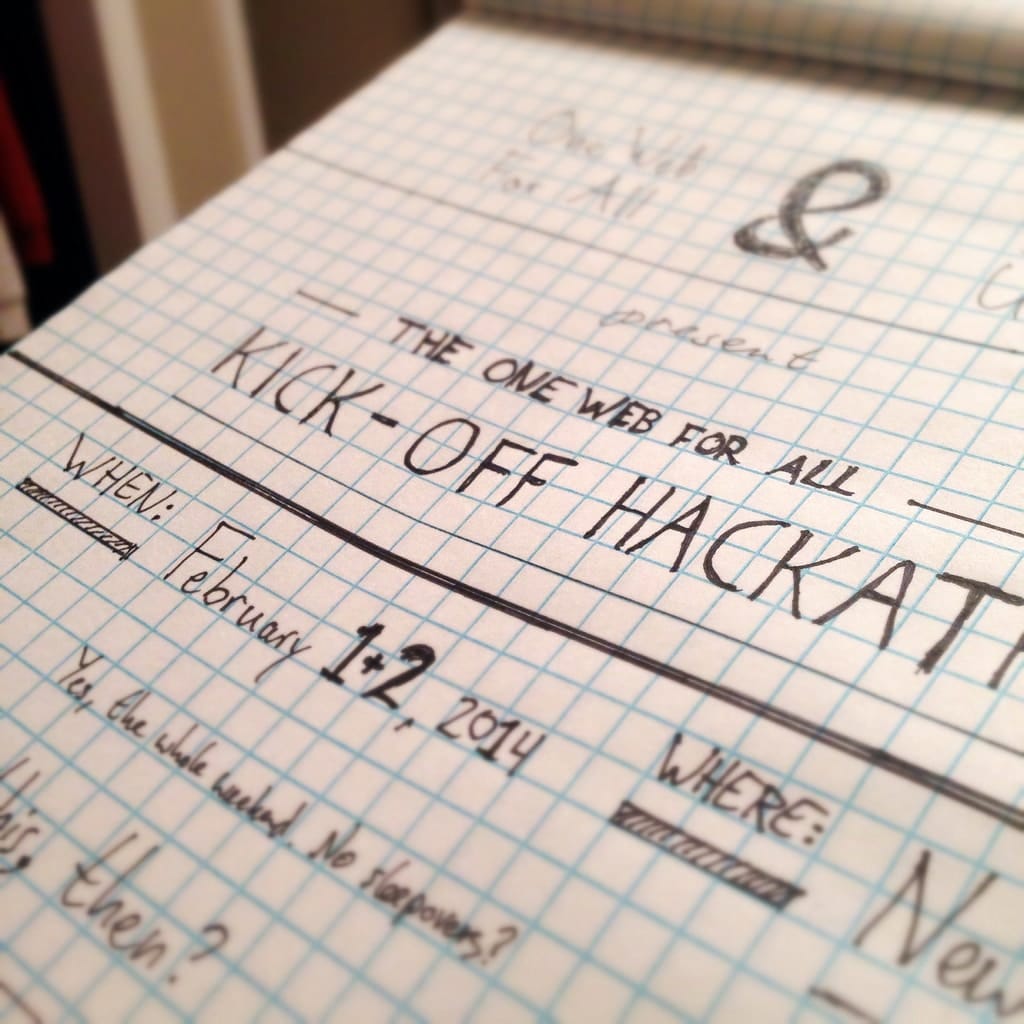 One Web
For All
&
present
THE ONE WEB FOR ALL
KICK-OFF HACKAT
WHEN: February 1+2, 2014
Yes, the whole weekend. No sleepovers?
this, then?
WHERE: New